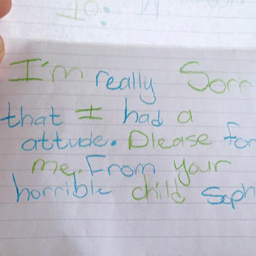 To:
I'm really Sorr
that I had a
attude. Please for
me. From your
horrible child Soph